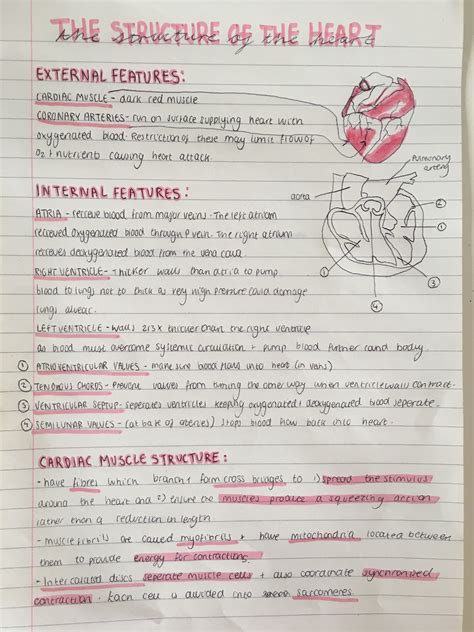 THE STRUCTURE OF THE HEART
the structure of the heart
EXTERNAL FEATURES:
CARDIAC MUSCLE - dark red muscle
CORONARY ARTERIES - run on surface supplying heart with
oxygenated blood. Restriction of these may limit flow of
O2 + nutrients causing heart attack.
Pulmonary
artery
aorta
INTERNAL FEATURES:
ATRIA - recieve blood from major veins. The left atrium
recieved oxygenated blood through P vein. The right atrium
recieves deoxygenated blood from the vena cava.
RIGHT VENTRICLE - thicker walls than atria to pump
blood to lungs not to thick as very high pressure could damage
lungs alveoli.
LEFT VENTRICLE - walls 2/3 x thicker than the right ventricle
as blood must overcome systemic circulation + pump blood further round body.
① ATRIOVENTRICULAR VALVES - make sure blood flows into heart (in vans)
② TENDONOUS CHORDS - Prevent valves from turning the other way when ventricle walls contract.
③ VENTRICULAR SEPTUM - seperates ventricles keeping oxygenated + deoxygenated blood seperate.
④ SEMILUNAR VALVES - (at base of ateries) stops blood flow back into heart.
② ① ③ ④
CARDIAC MUSCLE STRUCTURE:
- have fibres which branch + form cross bridges to 1) spread the stimulus
around the heart and 2) ensure the muscles produce a squeezing action
rather than a reduction in length.
- muscle fibrils are called myofibrils + have mitochondria located between
them to provide energy for contractions.
- Intercalated discs seperate muscle cells + also coordinate synchronised
contraction. Each cell is divided into sarcomeres.